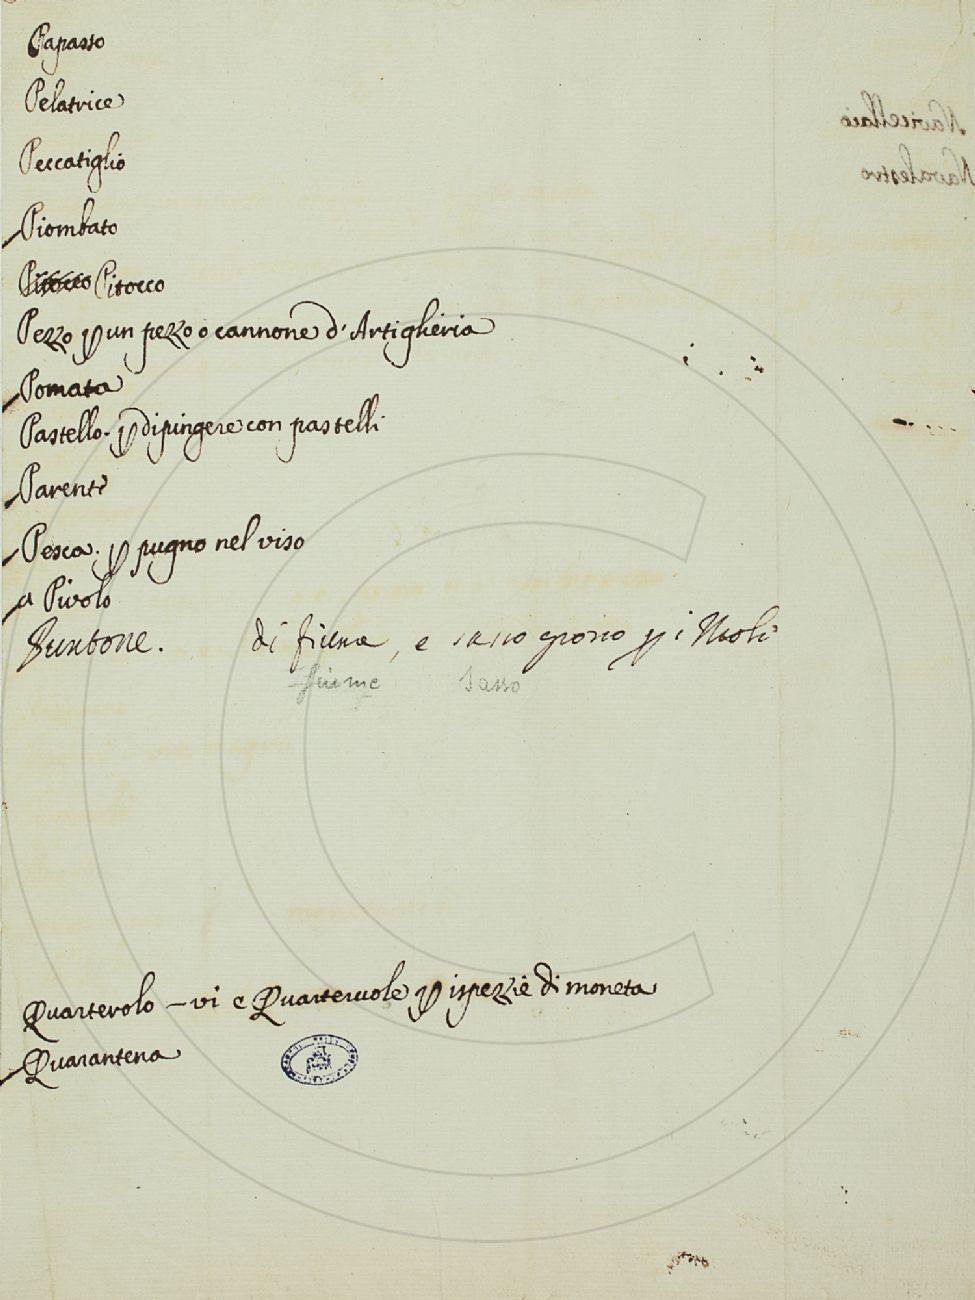 Papasso
Pelatrice
Peccatiglio
Piombato
Pitocco Pitocco
Pezzo p un pezzo o cannone d'Artigheria
Pomata
Pastello. p dipingere con pastelli
Parenti
Pesca. p pugno nel viso
a Pivolo
di fiume, e sasso grosso p i Moli
fiume sasso
Quarterolo – vi e Quarteruole p ispezzie di moneta
Quarantena
Navicellaio
Navalestro